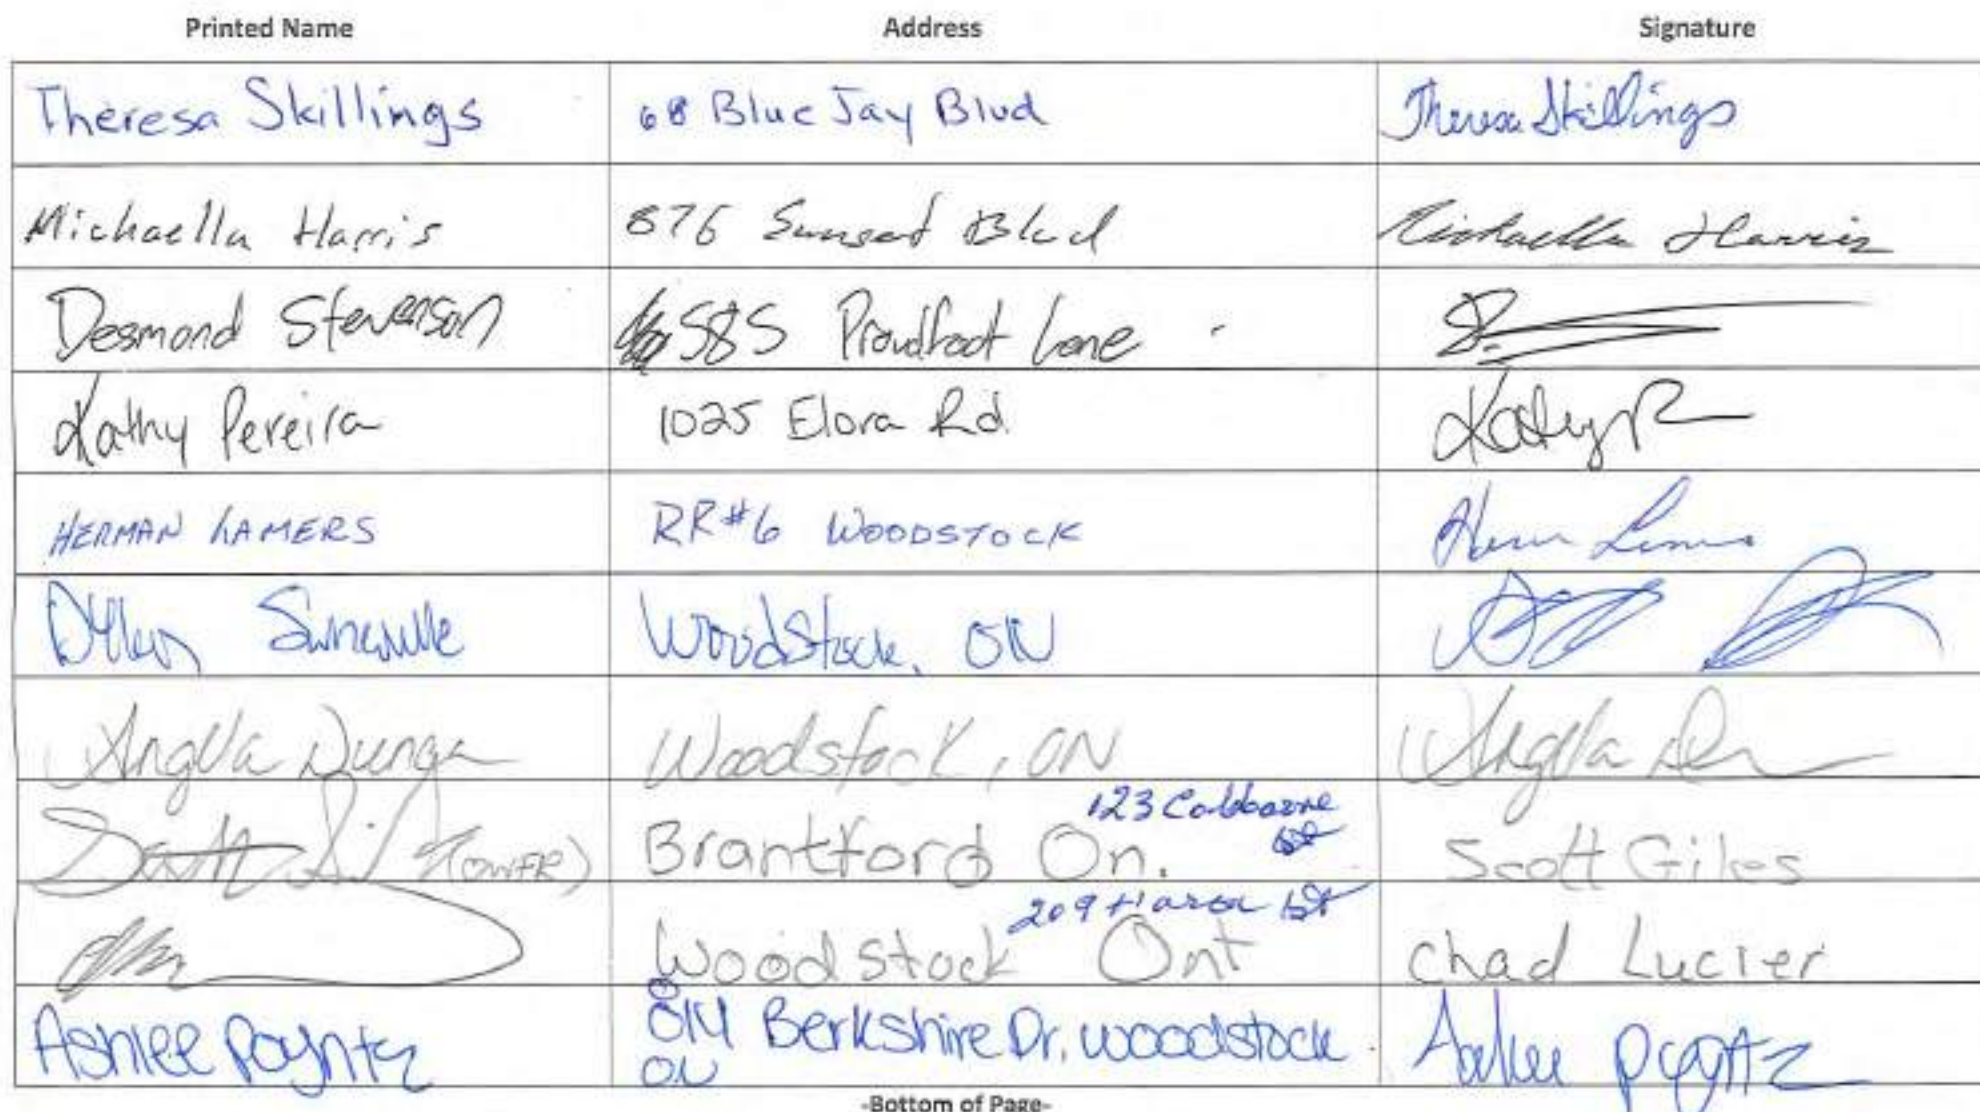 Printed Name Address Signature
Theresa Skillings 68 Blue Jay Blvd Theresa Skillings
Michaella Harris 876 Sunset Blvd Michaella Harris
Desmond Stevenson 585 Proudfoot Lane
Kathy Pereira 1025 Elora Rd. Kathy P
HERMAN LAMERS RR#6 WOODSTOCK
Dylan Woodstock, ON
Angela Dunga Woodstock, ON Angela
123 Colborne
St
(OWNER) Brantford On. Scott Giles
209 Huron St
Woodstock Ont Chad Lucier
Ashlee Poyntz 814 Berkshire Dr. Woodstock Ashlee Poyntz
ON
-Bottom of Page-